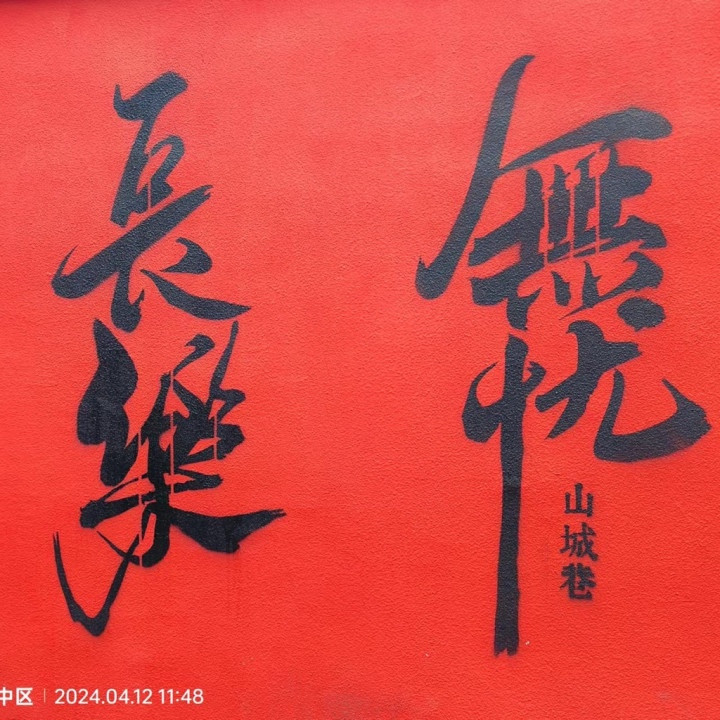 長樂
無忧
山城巷
中区 | 2024.04.12 11:48